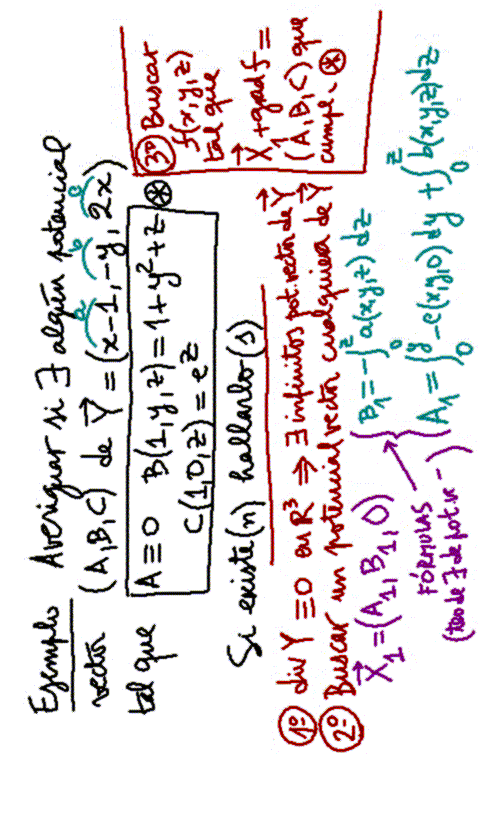 Ejemplo Averiguar si ∃ algún potencial
vector (A,B,C) de Y⃗ = (x-1, -y, 2x)
a b c
tal que
A ≡ 0 B(1,y,z) = 1+y²+z ⊛
C(1,0,z) = e^z
Si existe(n) hallarlo(s)
1º div Y ≡ 0 en R³ ⇒ ∃ infinitos pot. vector de Y⃗
2º Buscar un potencial vector cualquiera de Y⃗
X⃗₁ = (A₁, B₁, 0)
FÓRMULAS
(teo de ∃ de pot. ve -)
B₁ = -∫₀^z a(x,y,z) dz
A₁ = ∫₀^y -c(x,y,0) dy + ∫₀^z b(x,y,z) dz
3º Buscar
f(x,y,z)
tal que
X⃗₁ + grad f =
(A,B,C) que
cumple ⊛